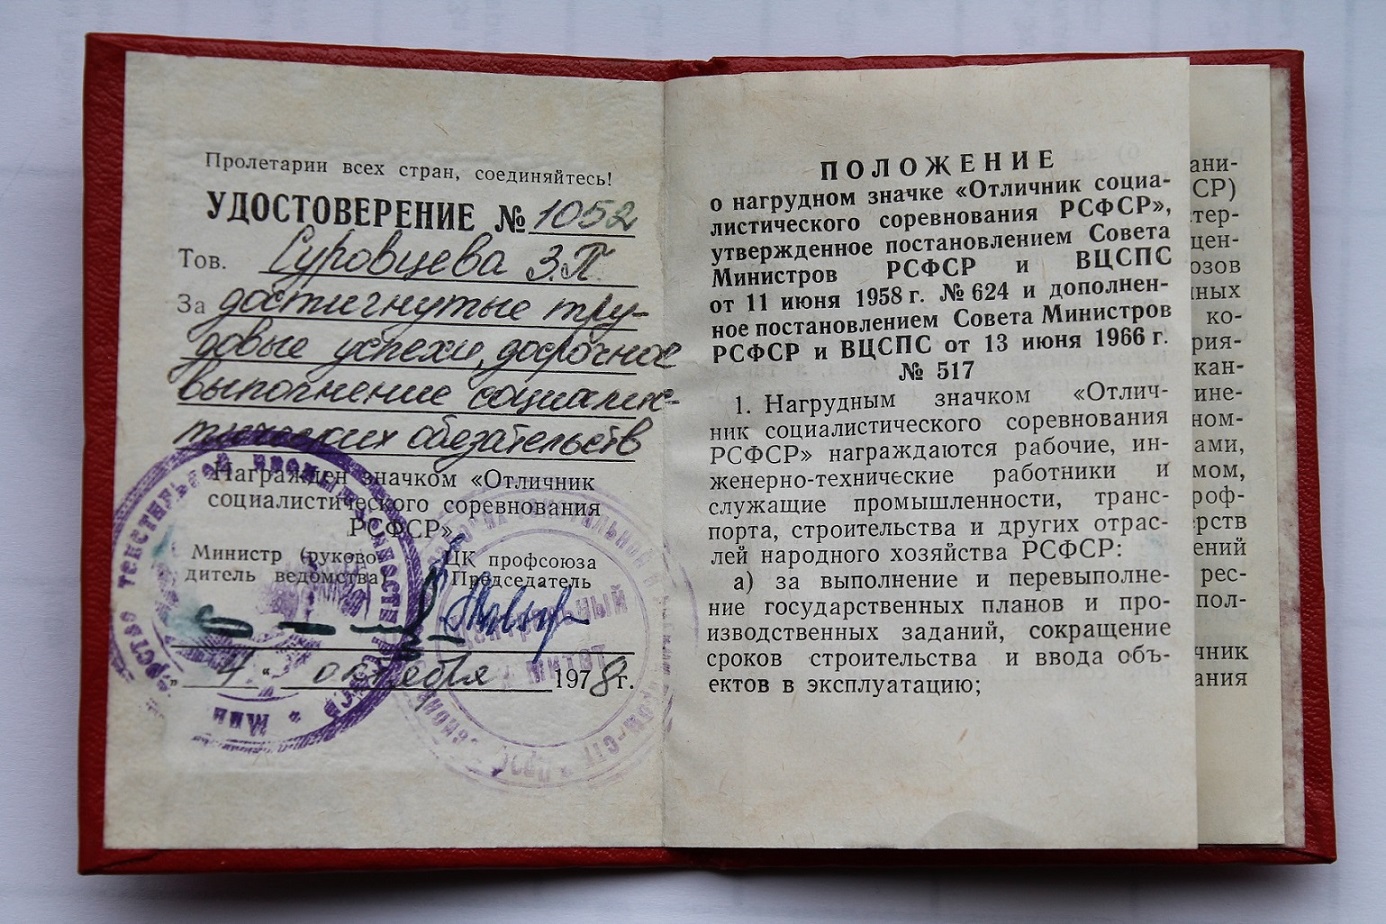 Пролетарии всех стран, соединяйтесь!
УДОСТОВЕРЕНИЕ № 1052
Тов. Суровцева З.П.
За достигнутые тру-
довые успехи, досрочное
выполнение социалис-
тических обязательств
Награжден значком «Отличник
социалистического соревнования
РСФСР»
Министр (руково-
дитель ведомства)
ЦК профсоюза
Председатель
" 4 " октября 1978 г.
ПОЛОЖЕНИЕ
о нагрудном значке «Отличник социа-
листического соревнования РСФСР»,
утвержденное постановлением Совета
Министров РСФСР и ВЦСПС
от 11 июня 1958 г. № 624 и дополнен-
ное постановлением Совета Министров
РСФСР и ВЦСПС от 13 июня 1966 г.
№ 517
1. Нагрудным значком «Отлич-
ник социалистического соревнования
РСФСР» награждаются рабочие, ин-
женерно-технические работники и
служащие промышленности, транс-
порта, строительства и других отрас-
лей народного хозяйства РСФСР:
а) за выполнение и перевыполне-
ние государственных планов и про-
изводственных заданий, сокращение
сроков строительства и ввода объ-
ектов в эксплуатацию;
ани-
СР)
тер-
цен-
озов
нных
ко-
рия-
кан-
ине-
ном-
ами,
мом,
роф-
ерств
ений
рес-
пол-
чник
ания